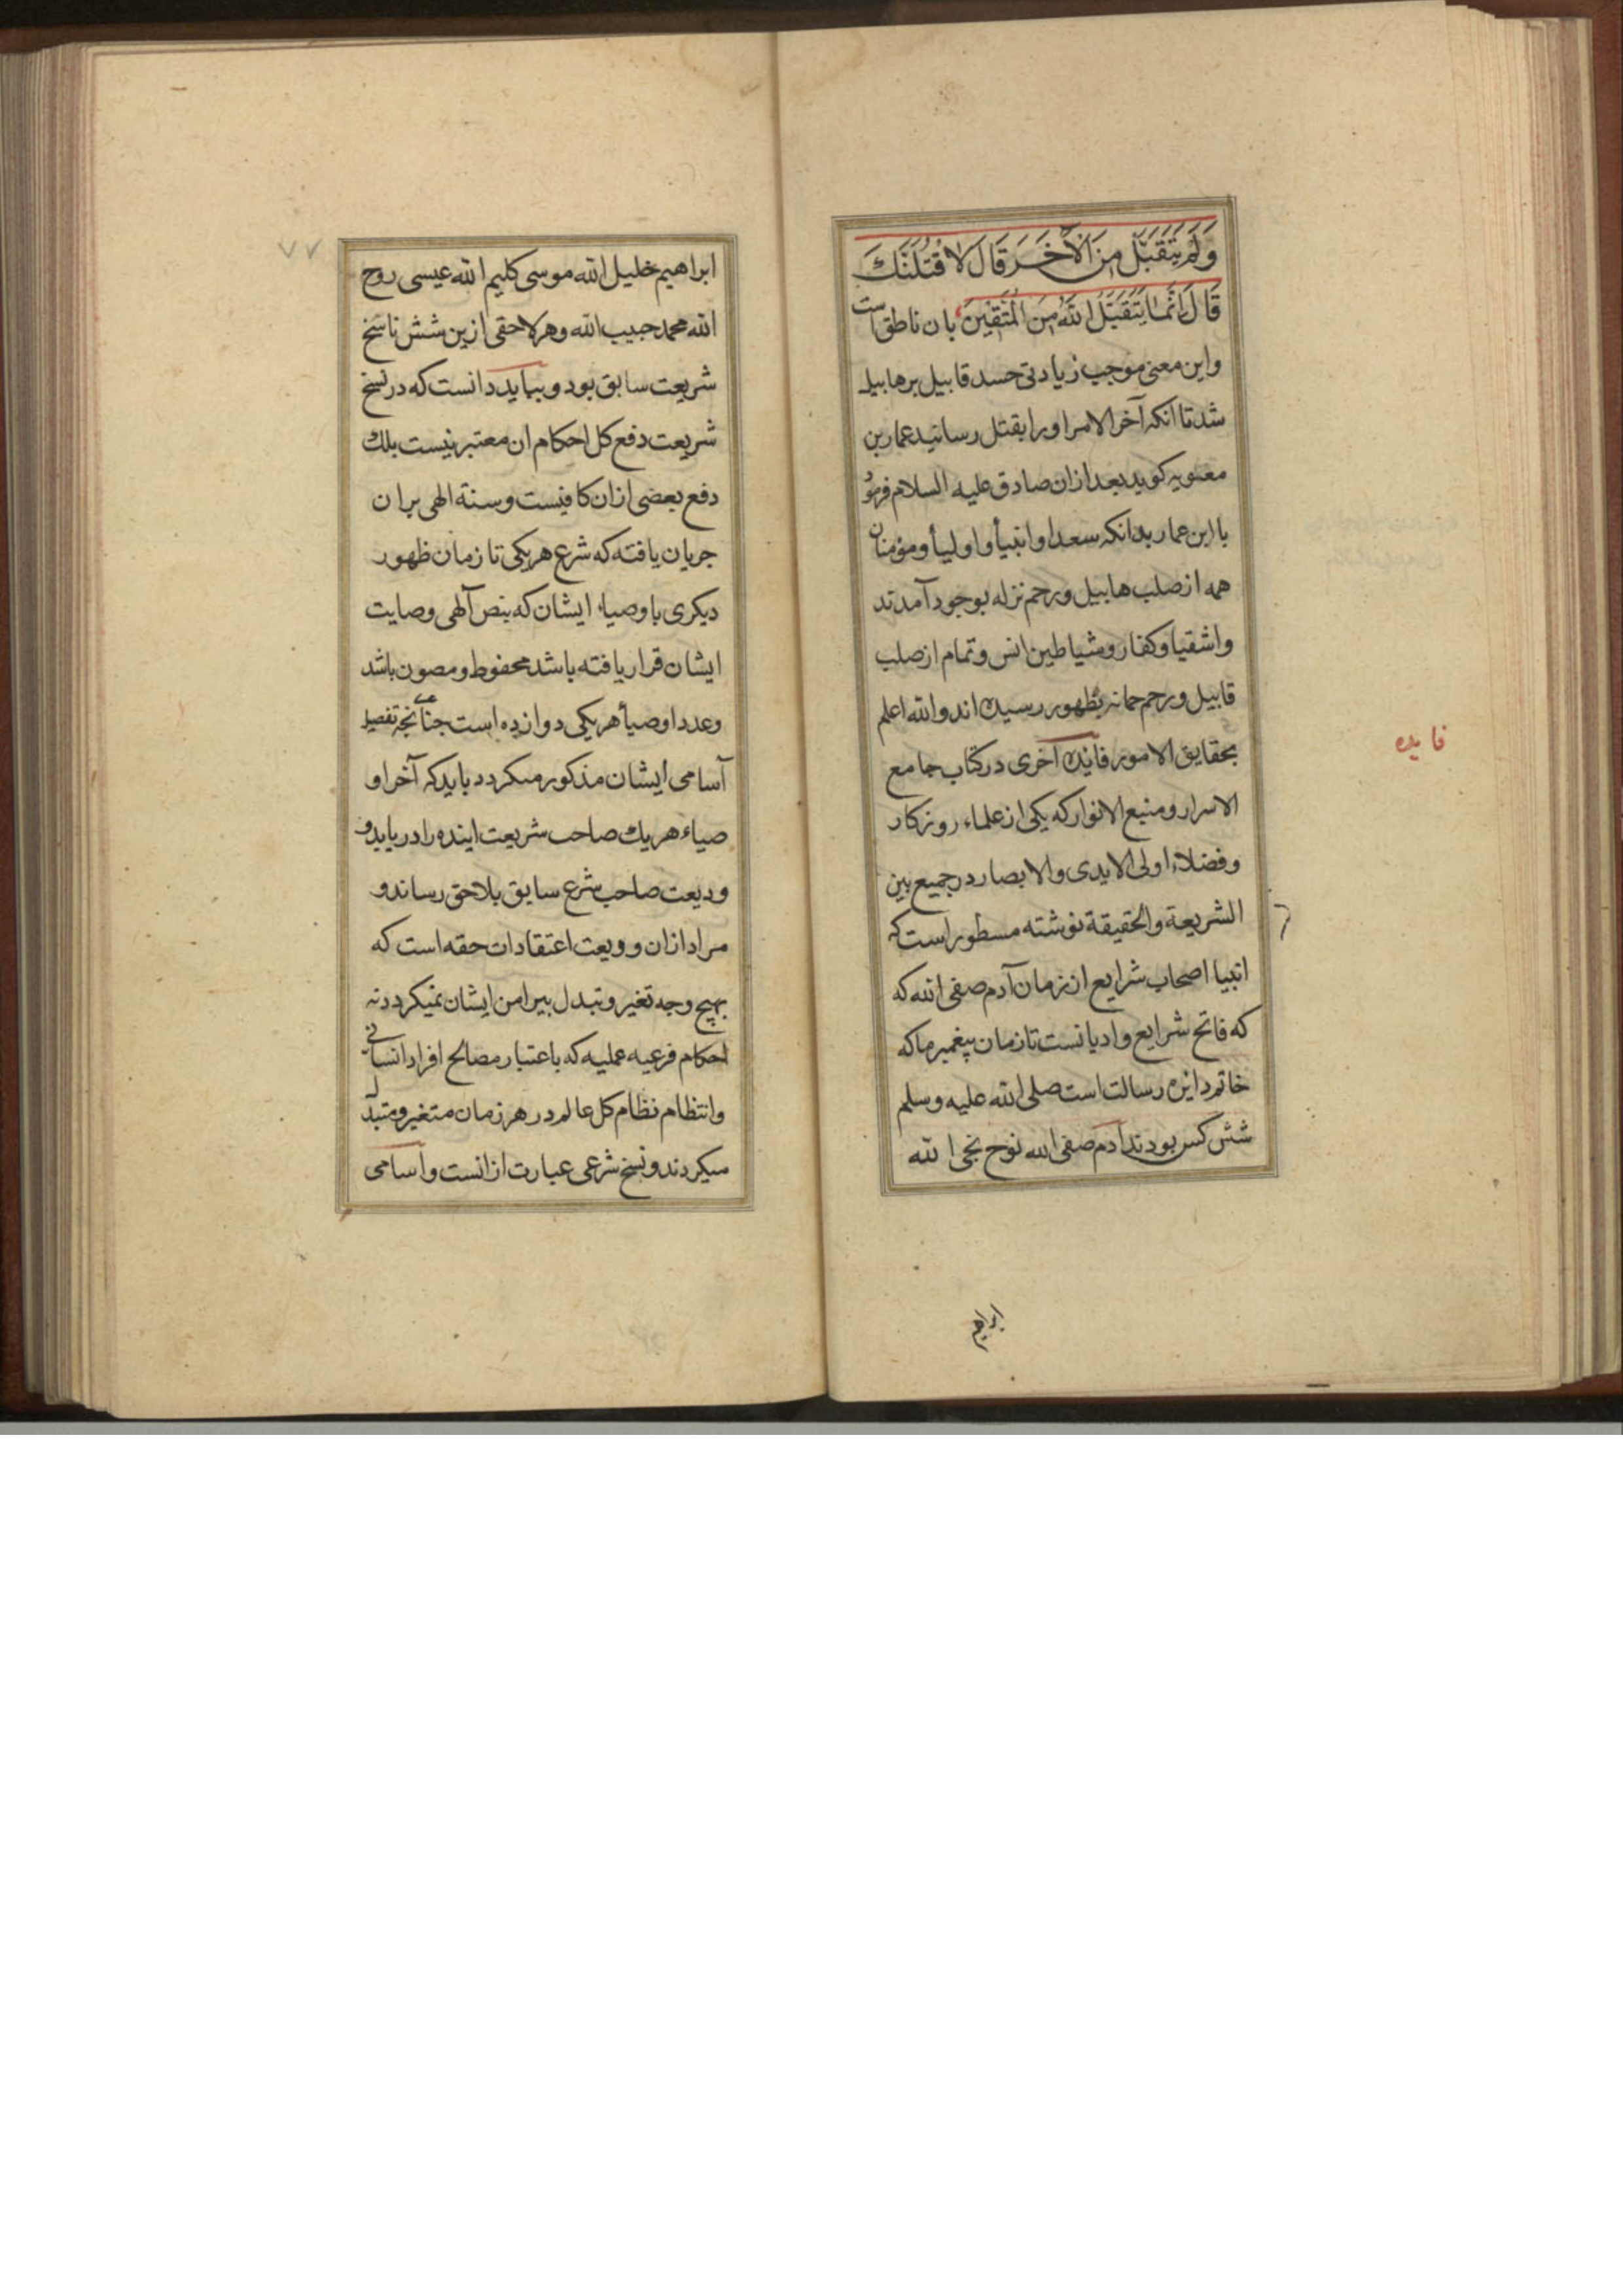 وَلَمْ يَتَقَبَّلْ مِنَ الْآخَرِ قَالَ لَاَقْتُلَنَّكَ
قَالَ اِنَّمَا يَتَقَبَّلُ اللّٰهُ مِنَ الْمُتَّقِيْنَ بان ناطق است
واین معنی موجب زیادتی حسد قابیل برهابیل
شد تا انکه آخر الامر او را بقتل رسانید عمار بن
معویه کوید بعد ازان صادق علیه السلام فرمود
یا ابن عمار بدانکه سعدا و انبیأ و اولیأ و مؤمنان
همه از صلب هابیل و رحم نزله بوجود آمدند
واشقیا وکفار وشیاطین انس وتمام از صلب
قابیل و رحم جمانه بظهور رسیده اند والله اعلم
بحقایق الامور فایده آخری در کتاب جامع
الاسرار و منبع الانوار که یکی از علماء روزکار
وفضلاء اولی الایدی والابصار در جمیع بین
الشریعة والحقیقة نوشته مسطور است که
انبیا اصحاب شرایع از زمان آدم صفی الله که
که فاتح شرایع وادیانست تا زمان پیغمبر ما که
خاتم دایره رسالت است صلی الله علیه وسلم
شش کس بودند آدم صفی الله نوح نجی الله
ابراهیم
فایده
ابراهیم خلیل الله موسی کلیم الله عیسی روح
الله محمد حبیب الله وهر لاحقی ازین شش ناسخ
شریعت سابق بود و بباید دانست که در نسخ
شریعت دفع کل احکام ان معتبر نیست بلك
دفع بعضی ازان کافیست وسنة الهی بران
جریان یافته که شرع هریکی تا زمان ظهور
دیکری باوصیاء ایشان که بنص آلهی وصایت
ایشان قرار یافته باشد محفوظ و مصون باشد
وعدد اوصیأ هریکی دوازده است چنانچه تفصیل
آسامی ایشان مذکور میکردد باید که آخر او
صیاء هریك صاحب شریعت اینده را دریابد و
ودیعت صاحب شرع سابق بلاحق رساند و
مراد ازان وویعت اعتقادات حقه است که
بهیچ وجه تغیر و تبدل پیرامن ایشان نمیکردد نه
احکام فرعیه عملیه که باعتبار مصالح افراد انسانی
وانتظام نظام کل عالم در هر زمان متغیر و متبدل
میکردند و نسخ شرعی عبارت ازانست و اسامی
۷۷